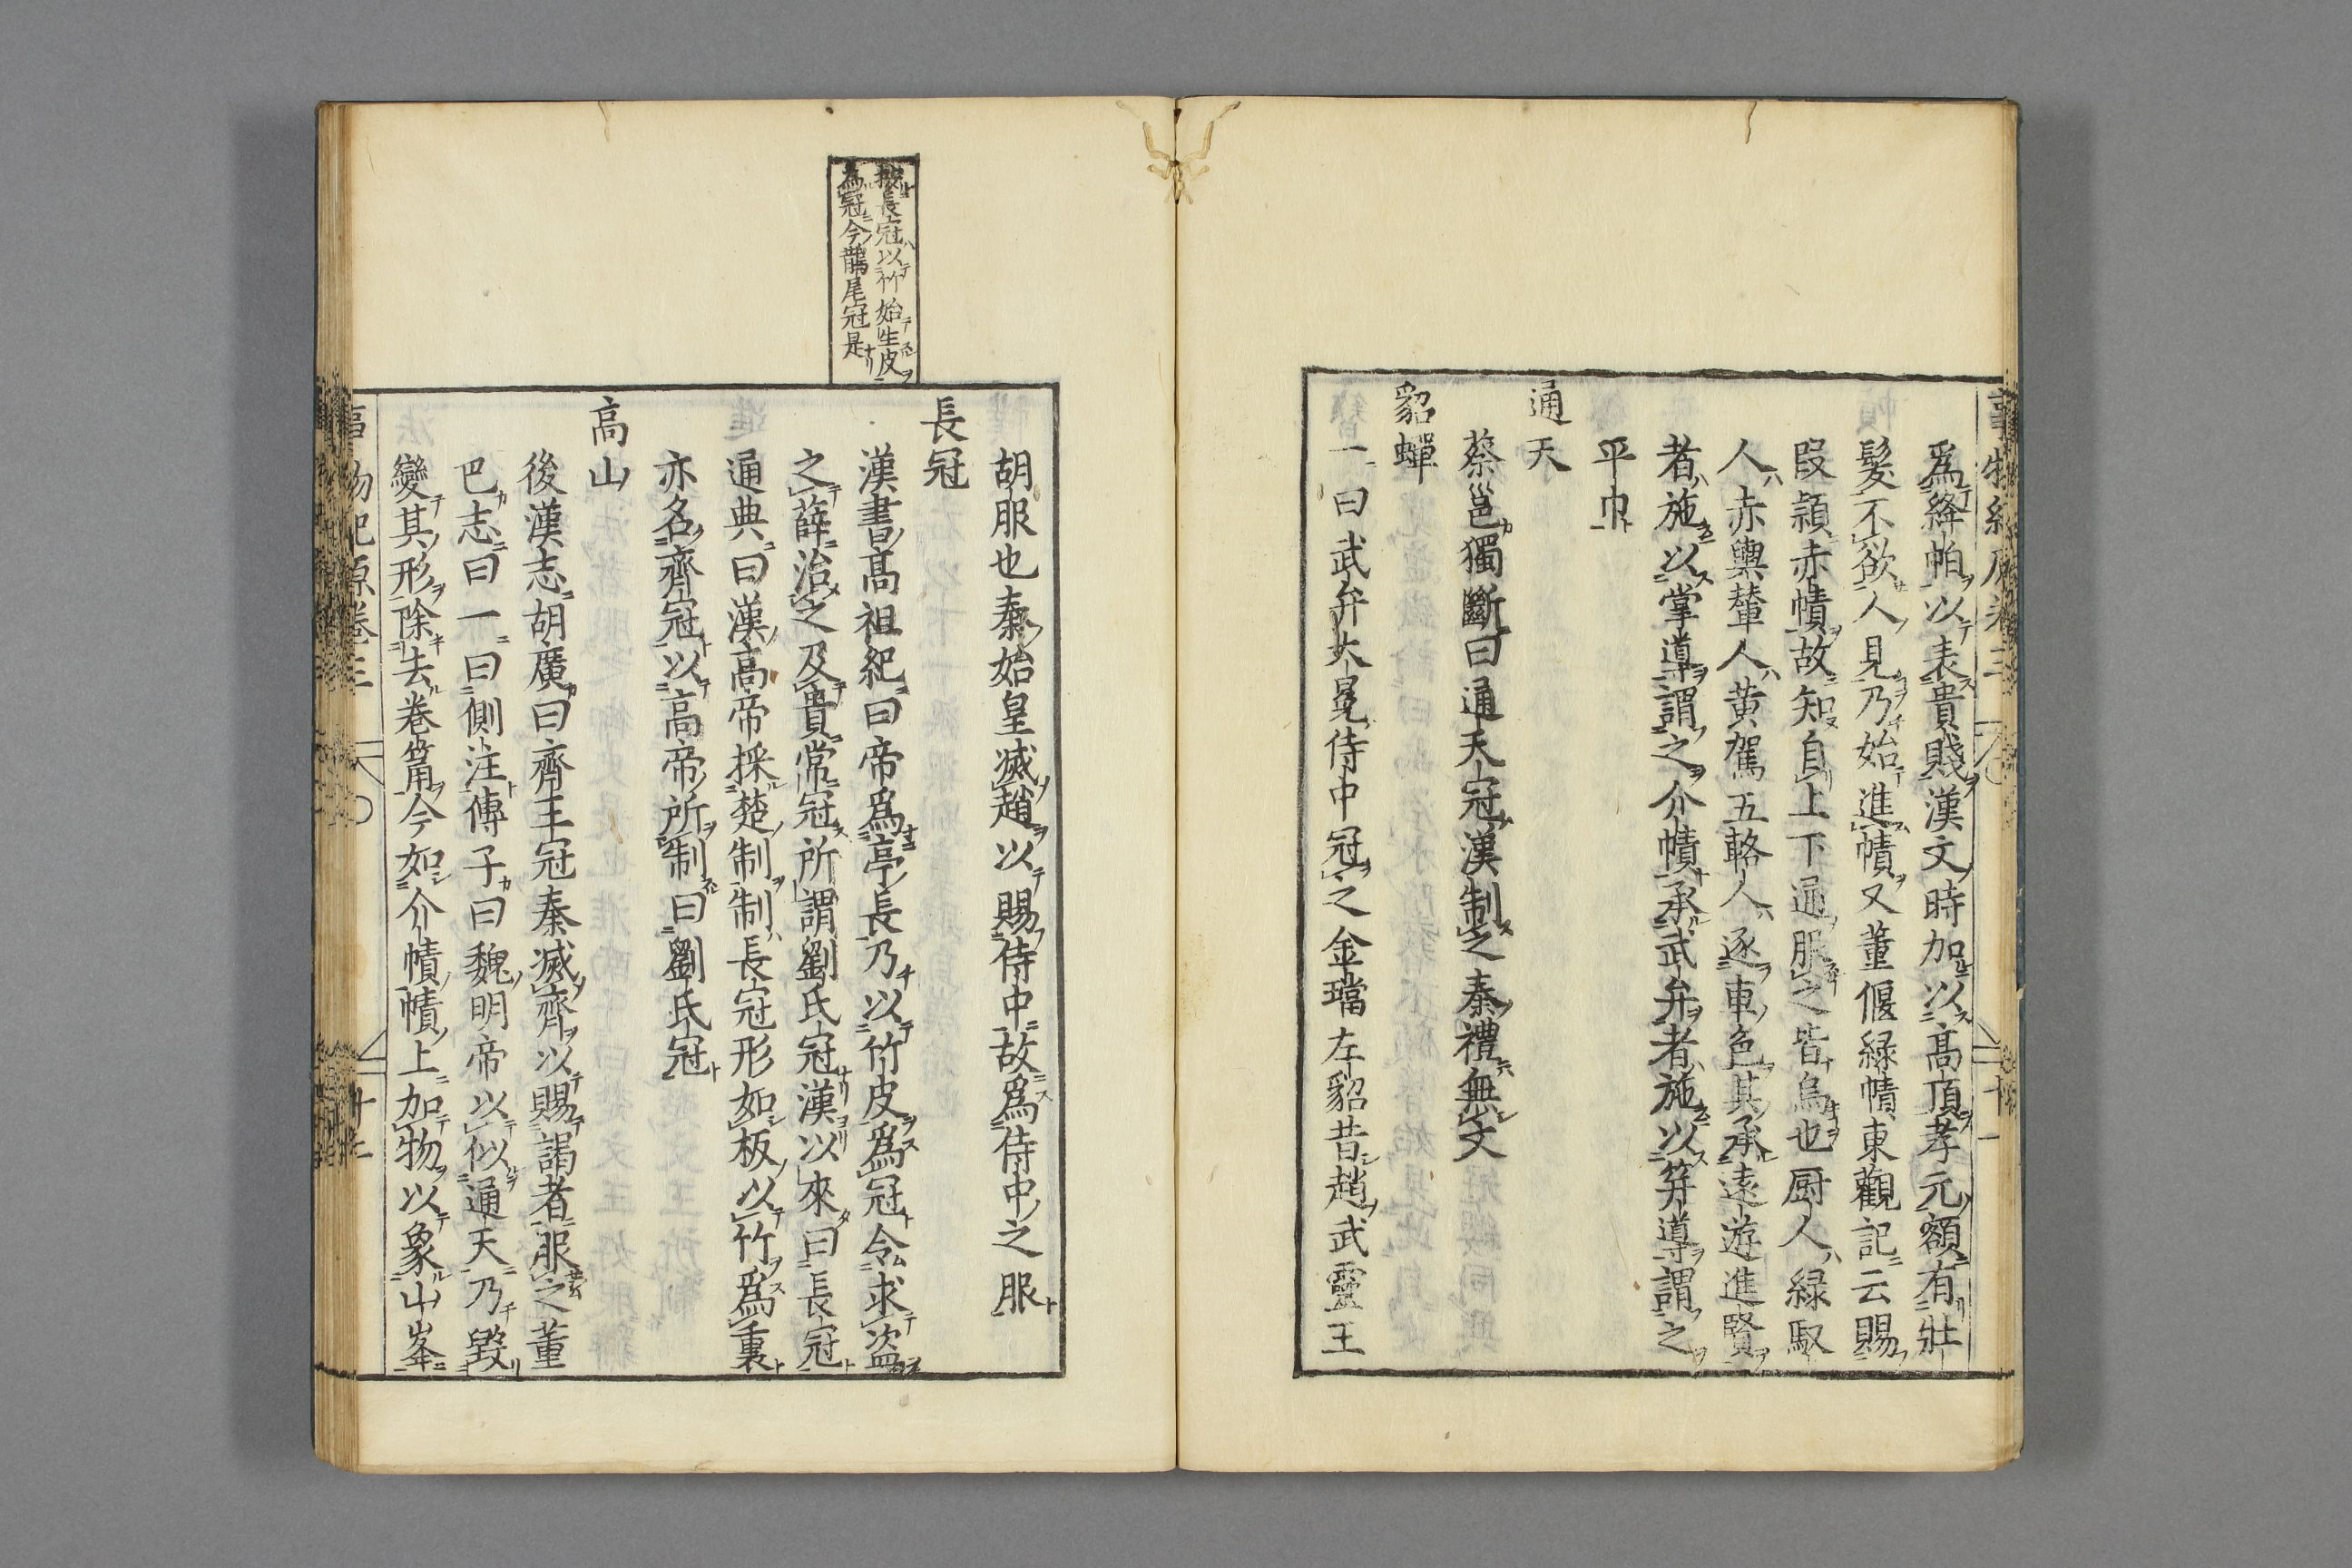 爲絳帕以表貴賤漢文時加以高頂孝元額有壯
髮不欲人見乃始進幘又董偃緑幘東觀記云賜
段頴赤幘故知自上下通服之皆烏也厨人緑馭
人赤輿輦人黄駕五輅人逐車色其承遠遊進賢
者施以掌導謂之介幘承武弁者施以笄導謂之
平巾
通天
蔡邕獨斷曰通天冠漢制之秦禮無文
貂蟬
一曰武弁大冕侍中冠之金璫左貂昔趙武靈王
胡服也秦始皇滅趙以賜侍中故爲侍中之服
長冠
漢書高祖紀曰帝爲亭長乃以竹皮爲冠令求盗
之薛治之及貴常冠所謂劉氏冠漢以來曰長冠
通典曰漢高帝採楚制制長冠形如板以竹爲裏
亦名齊冠以高帝所制曰劉氏冠
高山
後漢志胡廣曰齊王冠秦滅齊以賜謁者服之董
巴志曰一曰側注傳子曰魏明帝以似通天乃毀
變其形除去卷筩今如介幘幘上加物以象山峯
按長冠以竹始生皮
為冠今鵲尾冠是